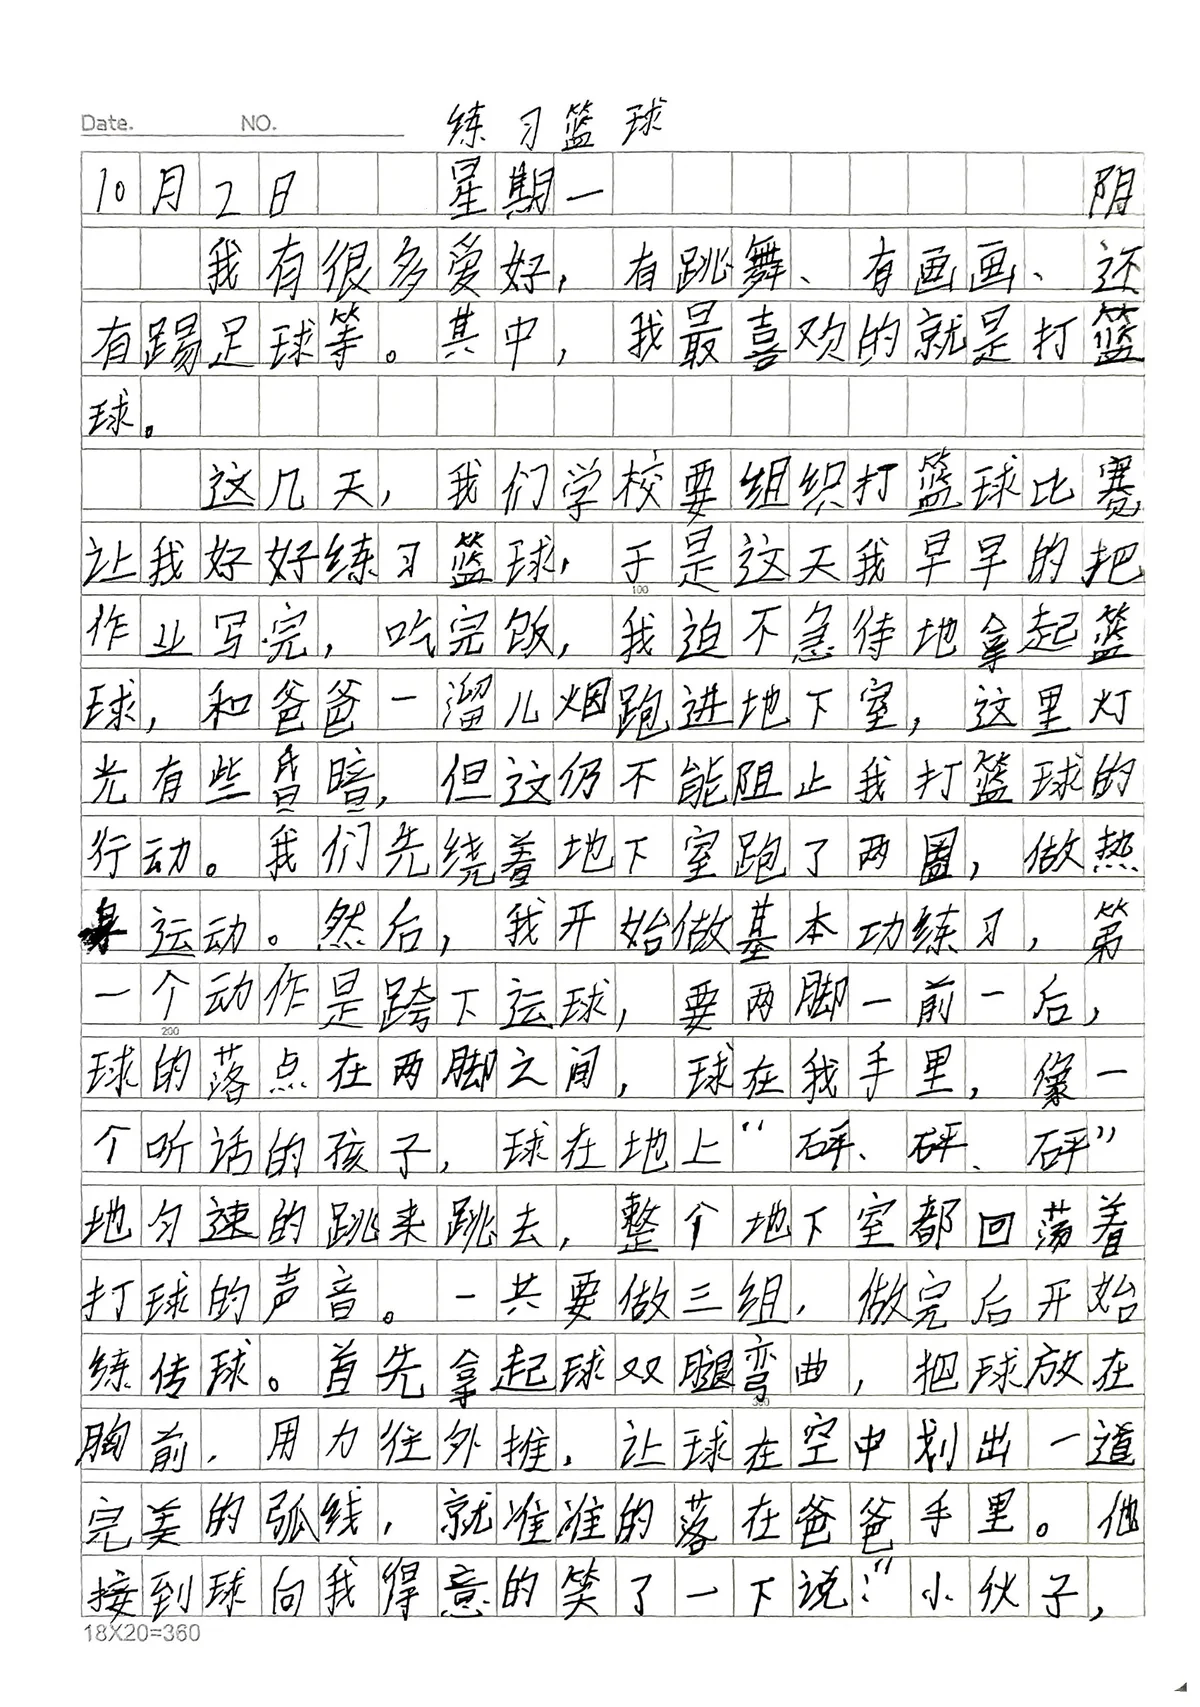 Date. NO. 练习篮球
10月2日 星期一 阴
我有很多爱好，有跳舞、有画画、还
有踢足球等。其中，我最喜欢的就是打篮
球。
这几天，我们学校要组织打篮球比赛，
让我好好练习篮球，于是这天我早早的把
100
作业写完，吃完饭，我迫不急待地拿起篮
球，和爸爸一溜儿烟跑进地下室，这里灯
光有些昏暗，但这仍不能阻止我打篮球的
行动。我们先绕着地下室跑了两圈，做热
身运动。然后，我开始做基本功练习，第
一个动作是跨下运球，要两脚一前一后，
200
球的落点在两脚之间，球在我手里，像一
个听话的孩子，球在地上“砰、砰、砰”
地匀速的跳来跳去，整个地下室都回荡着
打球的声音。一共要做三组，做完后开始
练传球。首先拿起球双腿弯曲，把球放在
300
胸前，用力往外推，让球在空中划出一道
完美的弧线，就准准的落在爸爸手里。他
接到球向我得意的笑了一下说：“小伙子，
18X20=360